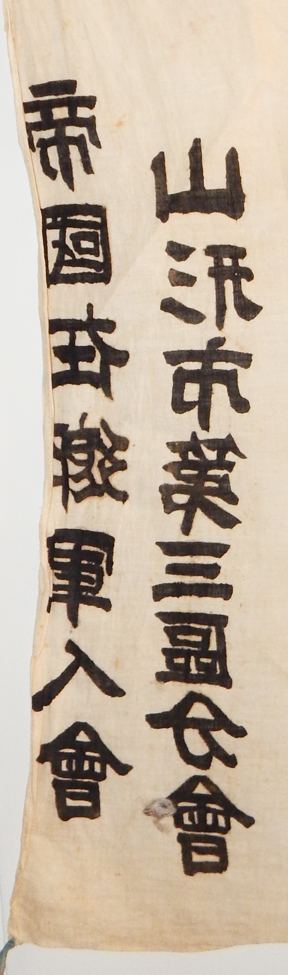 帝國在郷軍人會
山形市第三區分會